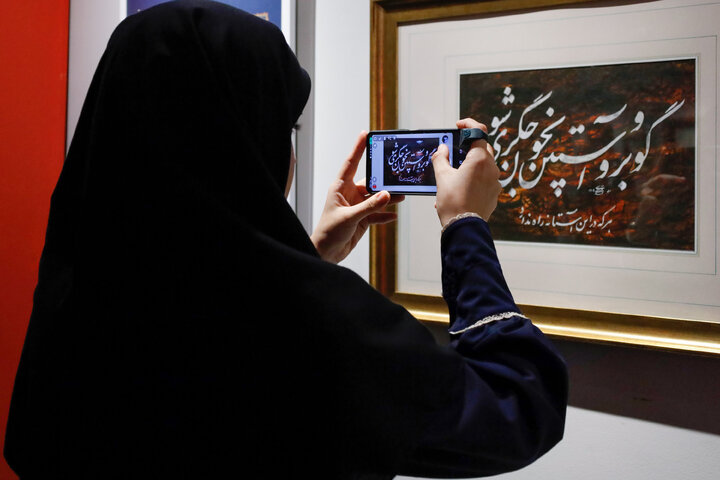 گو برو و آستین بخون جگر شوی
هر که در این آستانه راه ندارد